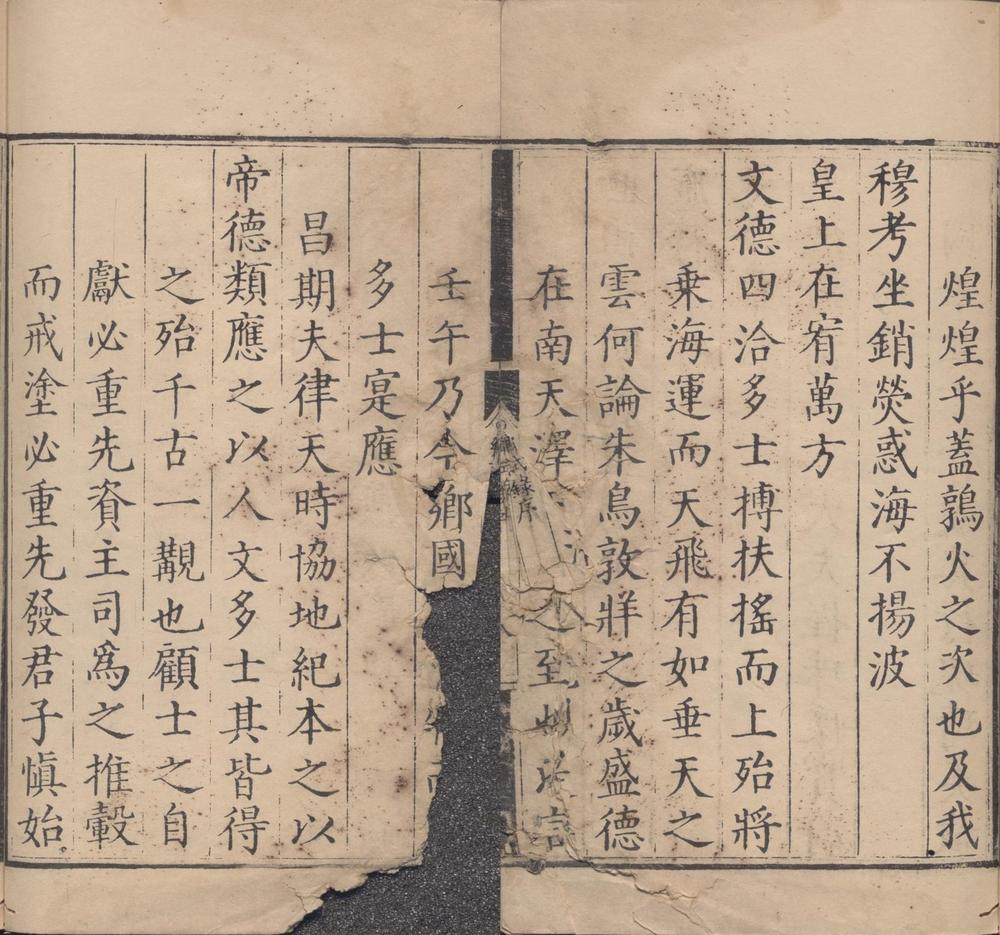 煌煌乎蓋鶉火之次也及我
穆考坐銷熒惑海不揚波
皇上在宥萬方
文德四洽多士搏扶搖而上殆將
乗海運而天飛有如垂天之
雲何論朱鳥敦牂之歲盛德
在南天澤之至
錄序
壬午乃今鄉國
多士寔應
昌期夫律天時協地紀本之以
帝德類應之以人文多士其皆得
之殆千古一覯也顧士之自
獻必重先資主司爲之推轂
而戒塗必重先發君子愼始